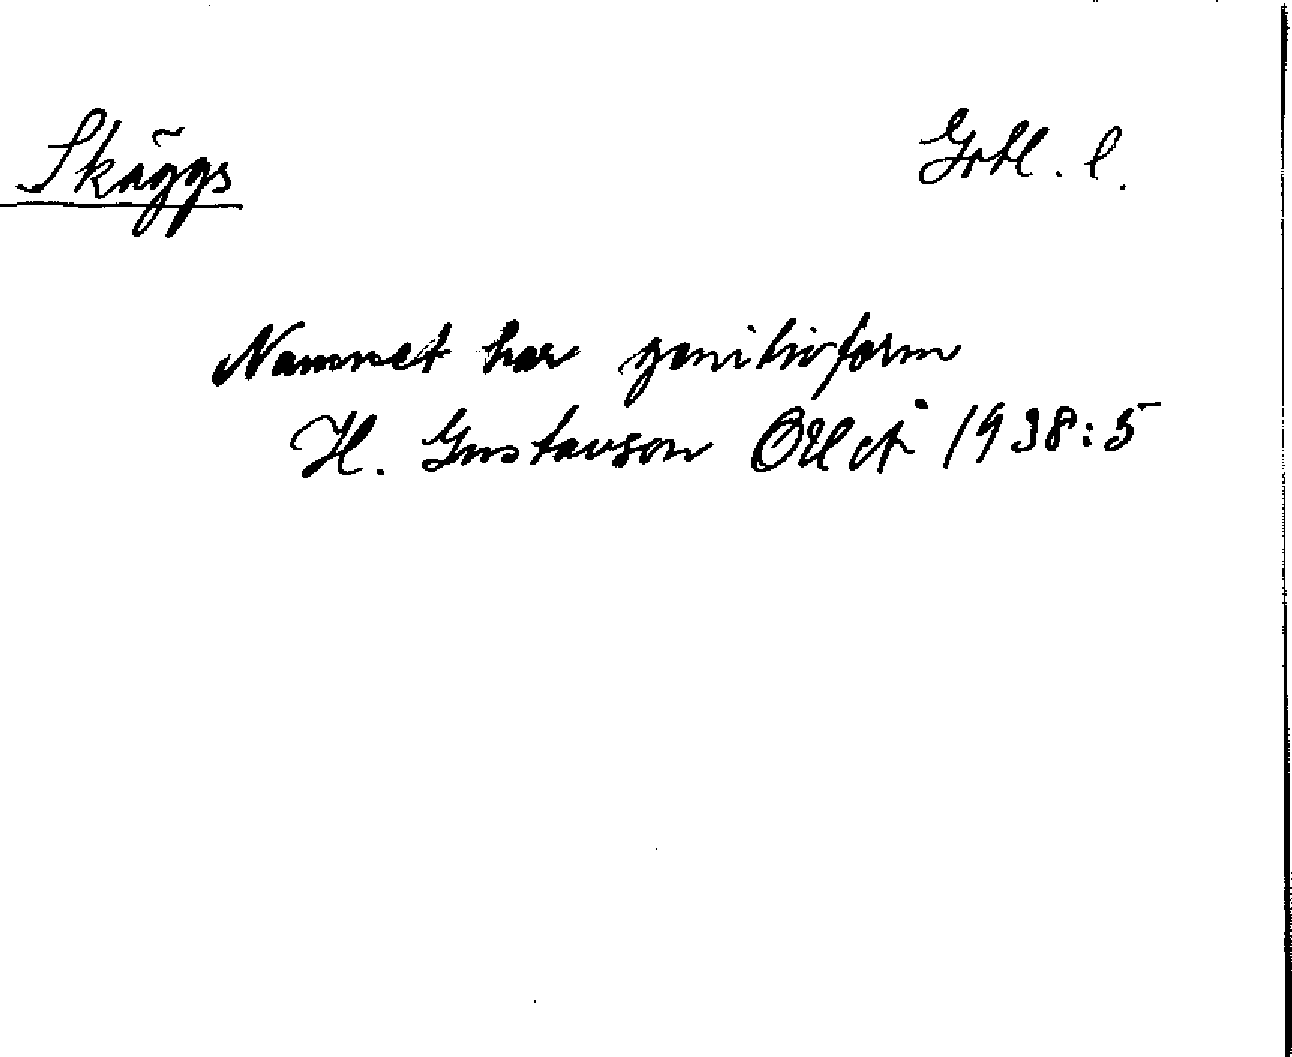 Skäggs Gotl. l.
Namnet har genitivform
H. Gustavson 1938:5